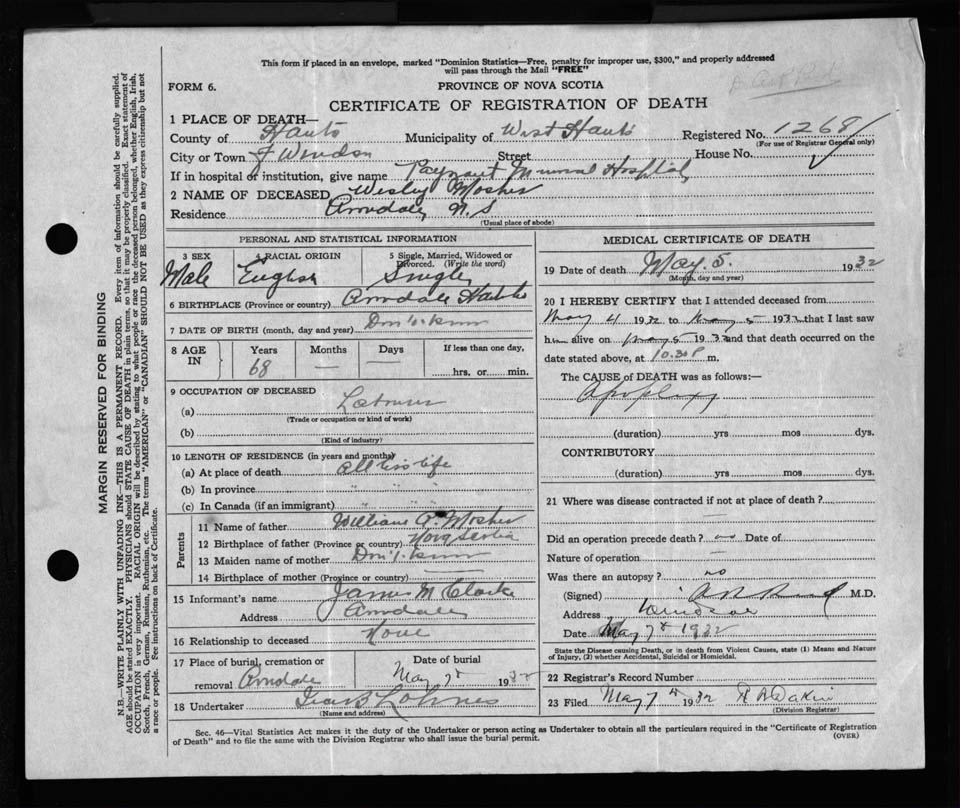 This form if placed in an envelope, marked "Dominion Statistics—Free, penalty for improper use, $300," and properly addressed
will pass through the Mail "FREE"
FORM 6.
PROVINCE OF NOVA SCOTIA
CERTIFICATE OF REGISTRATION OF DEATH
1 PLACE OF DEATH—
County of Hants Municipality of West Hants Registered No. 1268
(For use of Registrar General only)
City or Town of Windsor Street House No.
If in hospital or institution, give name Payzant Memorial Hospital
2 NAME OF DECEASED Wesley Mosher
Residence N. S
(Usual place of abode)
PERSONAL AND STATISTICAL INFORMATION
3 SEX 4 RACIAL ORIGIN 5 Single, Married, Widowed or Divorced. (Write the word)
Male English Single
6 BIRTHPLACE (Province or country) Hants
7 DATE OF BIRTH (month, day and year) Don't know
8 AGE IN Years Months Days If less than one day,
68 — — hrs. or min.
9 OCCUPATION OF DECEASED
(a) Labourer
(Trade or occupation or kind of work)
(b)
(Kind of industry)
10 LENGTH OF RESIDENCE (in years and months)
(a) At place of death all his life
(b) In province " " "
(c) In Canada (if an immigrant) " " "
Parents
11 Name of father William A. Mosher
12 Birthplace of father (Province or country) Nova Scotia
13 Maiden name of mother Don't know
14 Birthplace of mother (Province or country) —
15 Informant's name James M Clarke
Address
16 Relationship to deceased None
17 Place of burial, cremation or removal Date of burial
May 7th 1932
18 Undertaker Lohnes
(Name and address)
MEDICAL CERTIFICATE OF DEATH
19 Date of death May 5. 1932
(Month, day and year)
20 I HEREBY CERTIFY that I attended deceased from
May 4 1932 to May 5 1932 that I last saw
him alive on May 5 1932 and that death occurred on the
date stated above, at 10.30 P m.
The CAUSE of DEATH was as follows:—
Apoplexy
(duration) yrs mos dys.
CONTRIBUTORY
(duration) yrs mos dys.
21 Where was disease contracted if not at place of death?
—
Did an operation precede death? no Date of
Nature of operation —
Was there an autopsy? no
(Signed) M.D.
Address Windsor
Date May 7th 1932
State the Disease causing Death, or in death from Violent Causes, state (1) Means and Nature
of Injury, (2) whether Accidental, Suicidal or Homicidal.
22 Registrar's Record Number
23 Filed May 7th 1932 Dakin
(Division Registrar)
Sec. 46—Vital Statistics Act makes it the duty of the Undertaker or person acting as Undertaker to obtain all the particulars required in the "Certificate of Registration
of Death" and to file the same with the Division Registrar who shall issue the burial permit.
(OVER)
MARGIN RESERVED FOR BINDING
N.B.—WRITE PLAINLY WITH UNFADING INK—THIS IS A PERMANENT RECORD. Every item of information should be carefully supplied.
AGE should be stated EXACTLY. PHYSICIANS should STATE CAUSE OF DEATH in plain terms, so that it may be properly classified. Exact statement of
OCCUPATION is very important. RACIAL ORIGIN will be described by stating to what people or race the deceased person belonged, whether English, Irish,
Scotch, French, German, Russian, Ruthenian, etc. The terms "AMERICAN" or "CANADIAN" SHOULD NOT BE USED as they express citizenship but not
a race or people. See instructions on back of Certificate.